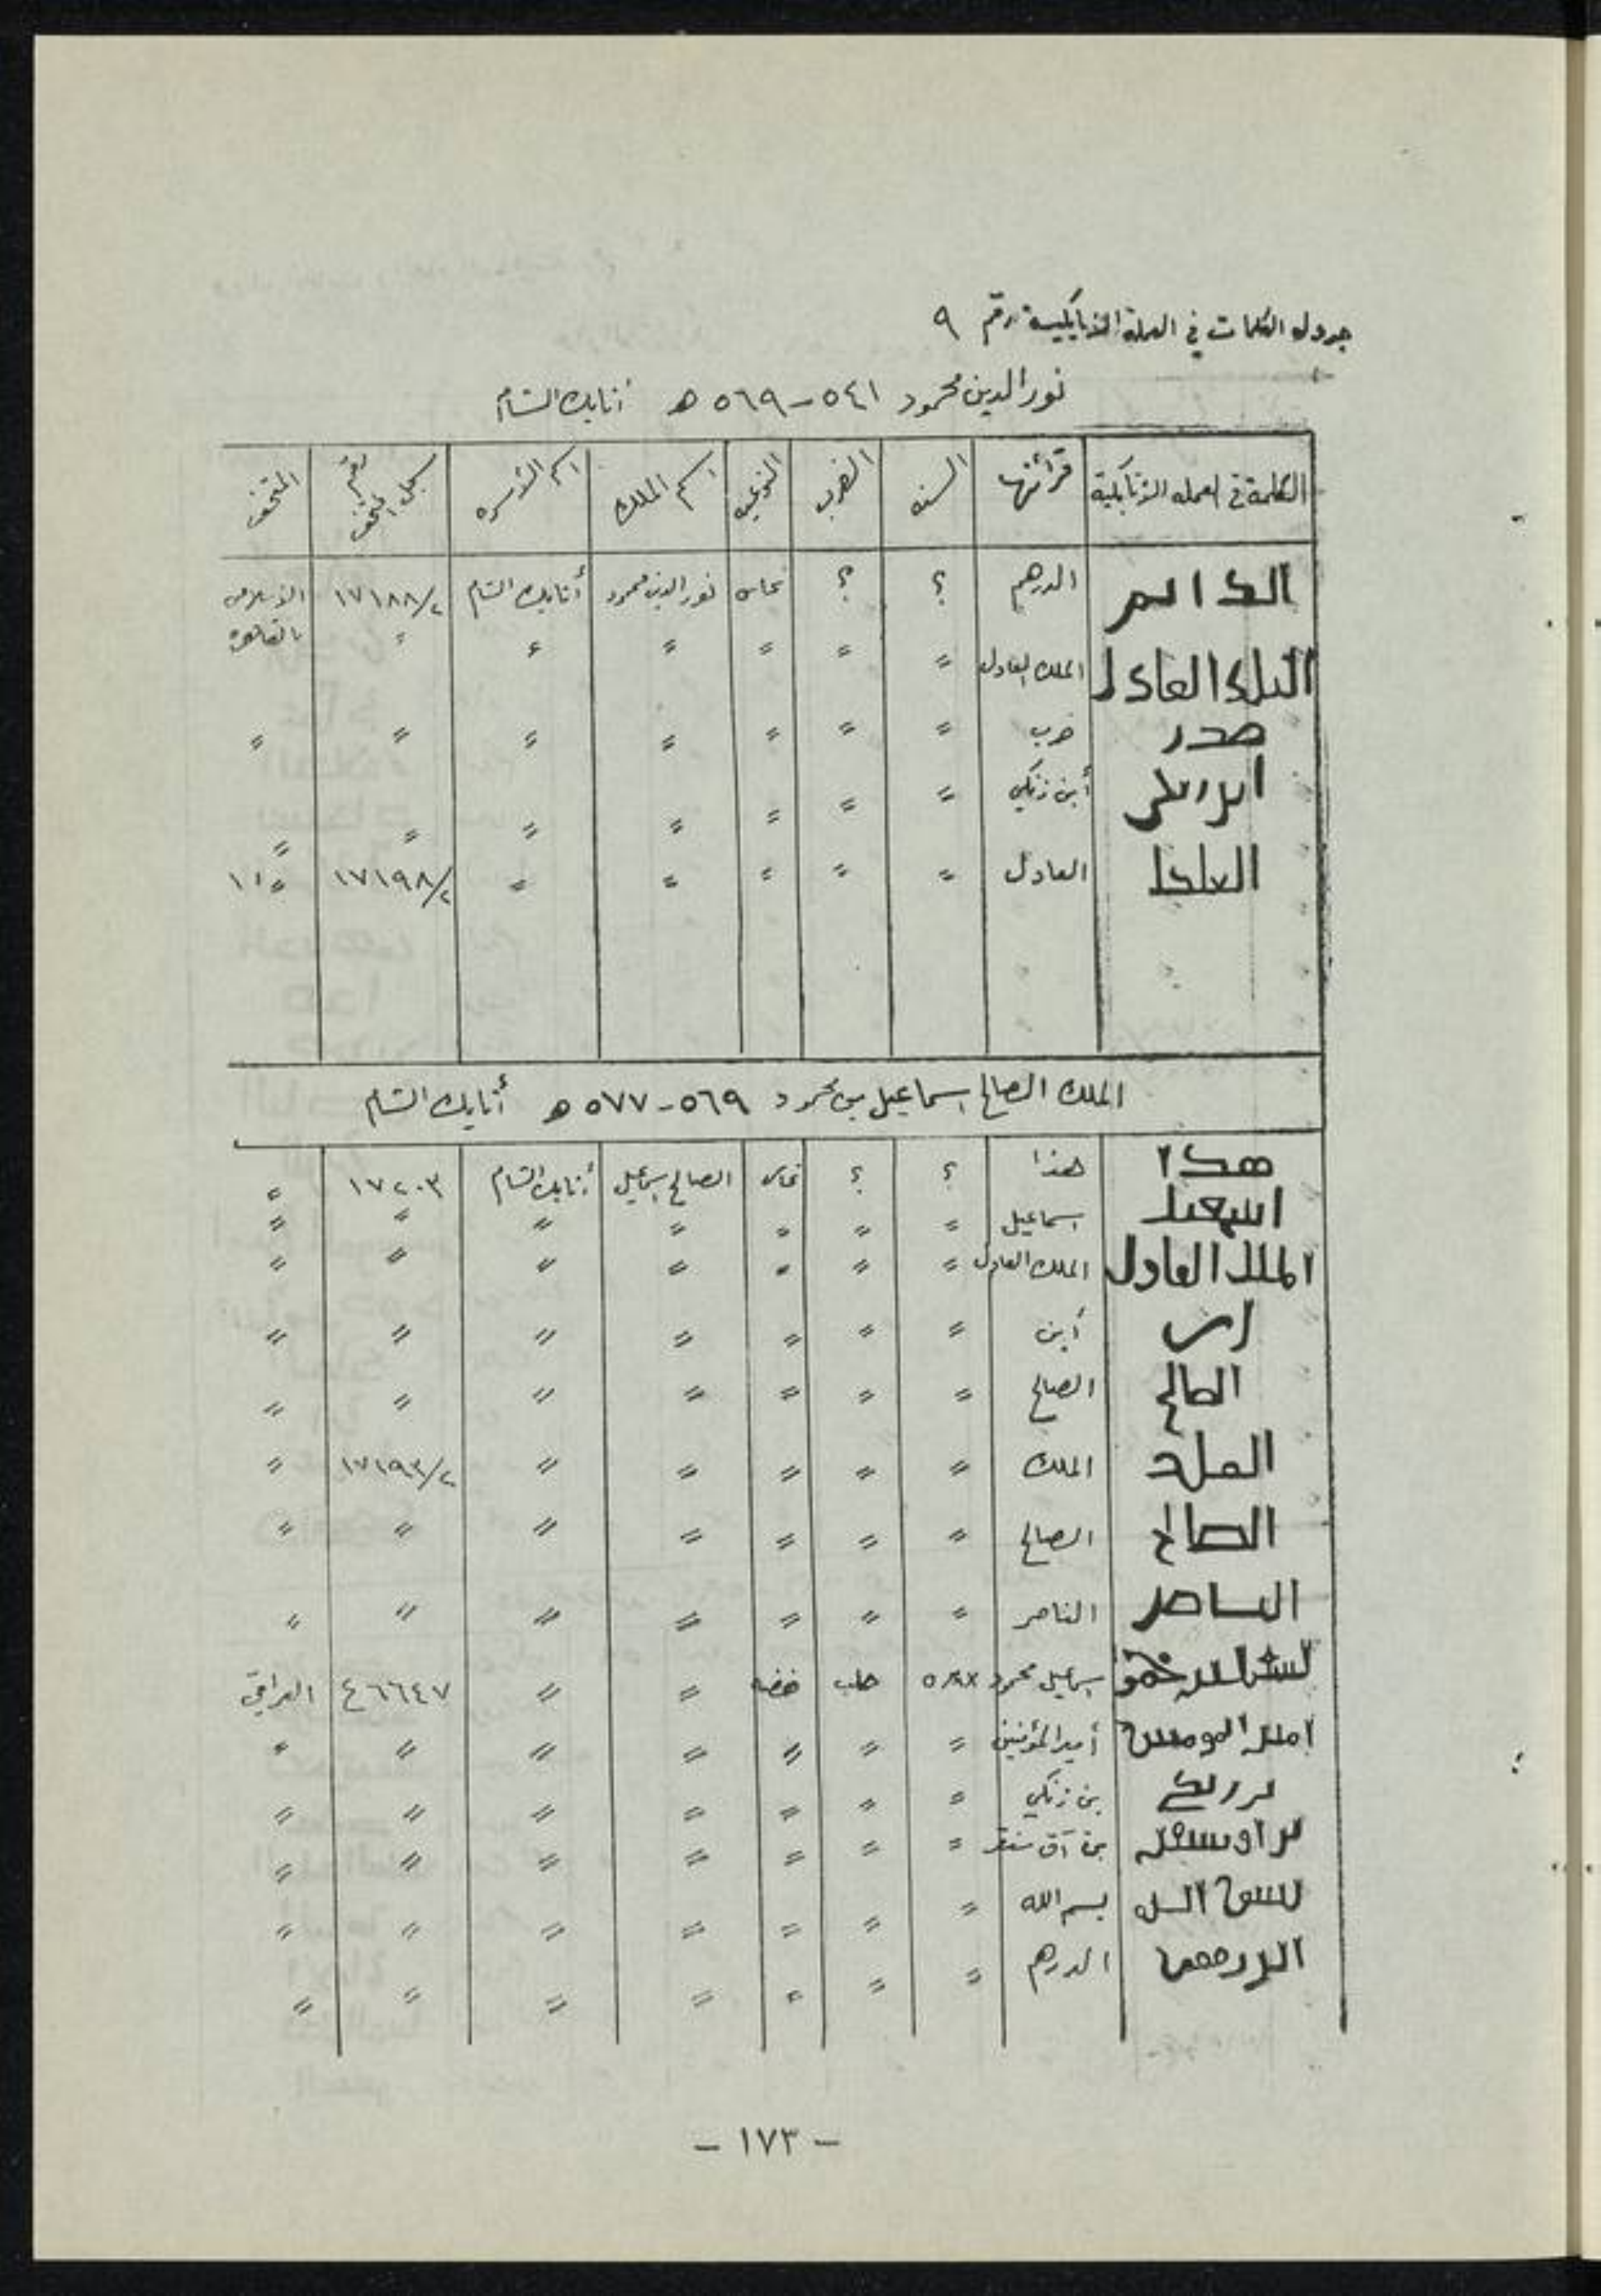 جدول الكلمات في العملة الأتابكية رقم ٩
نور الدين محمود ٥٤١ - ٥٦٩ هـ أتابك الشام
الكلمة في العملة الأتابكية قرائتها السنه الضرب النوعية اسم الملك اسم الأسره رقم سجل المتحف المتحف
الدرهم ؟ ؟ نحاس نور الدين محمود أتابك الشام ١٧١٨٨/٢ الاسلامي بالقاهرة
الملك العادل " " " " " "
صرر ضرب " " " " " " "
أبن زنكي " " " " " " "
العادل " " " " " ١٧١٩٨/٢ "
الملك الصالح اسماعيل بن محمود ٥٦٩ - ٥٧٧ هـ أتابك الشام
هدا هذا ؟ ؟ نحاس الصالح اسماعيل أتابك الشام ١٧٢٠٣ "
اسماعيل " " " " " " "
الملك العادل الملك العادل " " " " " " "
ابن أبن " " " " " " "
الصالح الصالح " " " " " " "
الملك الملك " " " " " ١٧١٩٣/٢ "
الصالح الصالح " " " " " " "
الناصر الناصر " " " " " " "
اسماعيل محمود حلب فضه " " ٤٦٦٤٧ العراقي
امير المومنين أمير المؤمنين " " " " " " "
بن زنكي " " " " " " "
بن آق سنقر " " " " " " "
بسم الله " " " " " " "
الدرهم " " " " " " "
- ١٧٣ -